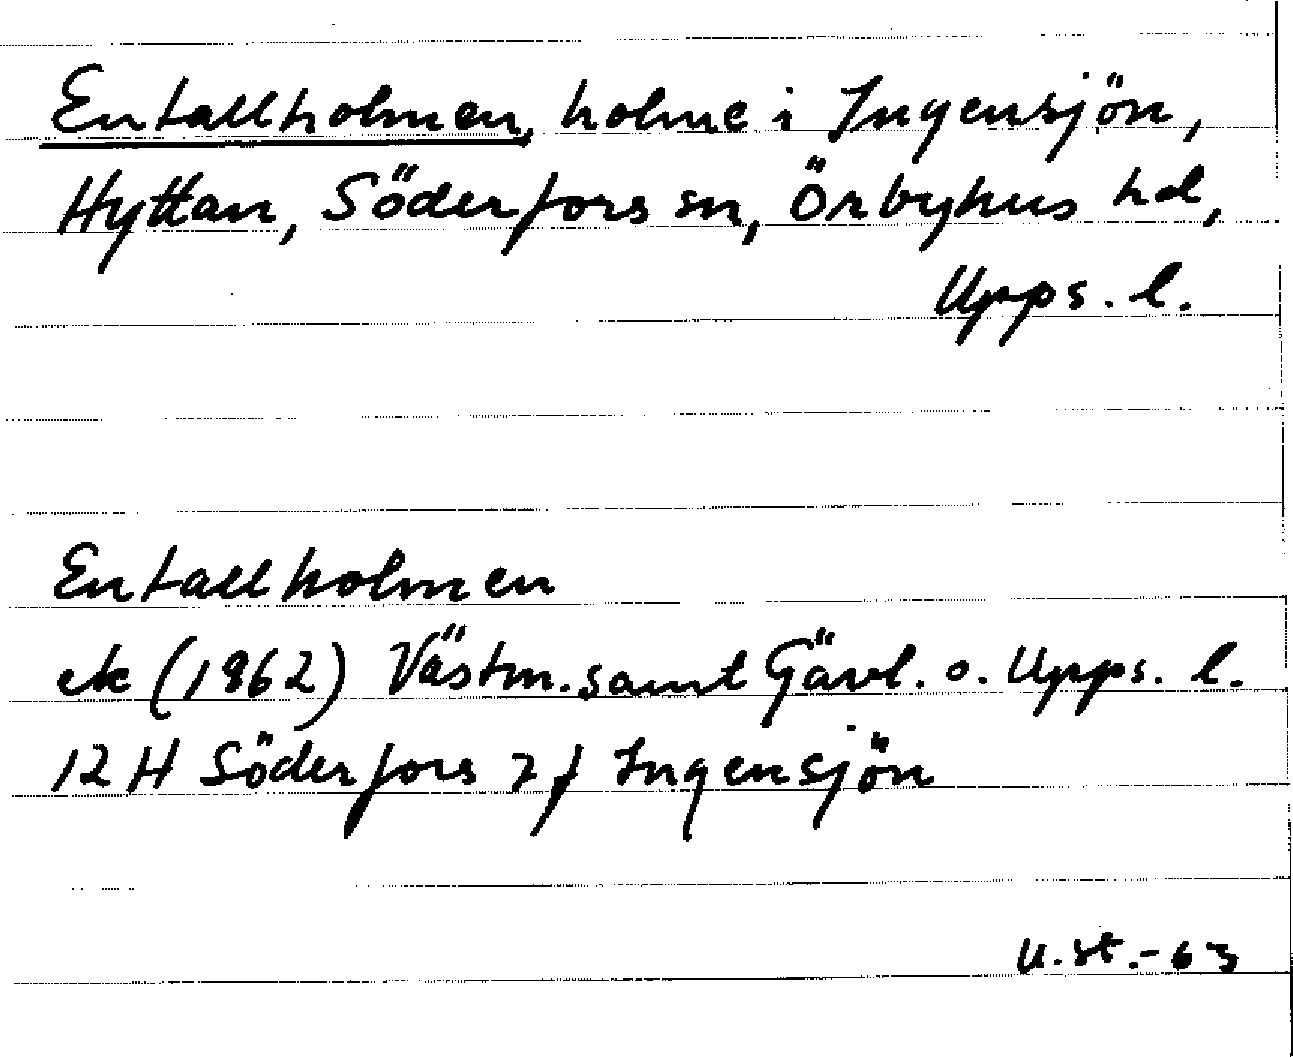 Entallholmen, holme i Ingensjön,
Hyttan, Söderfors sn, Örbyhus hd,
Upps. l.
Entallholmen
ek (1962) Västm. samt Gävl. o. Upps. l.
12 H Söderfors 7 f Ingensjön
U.st.-63